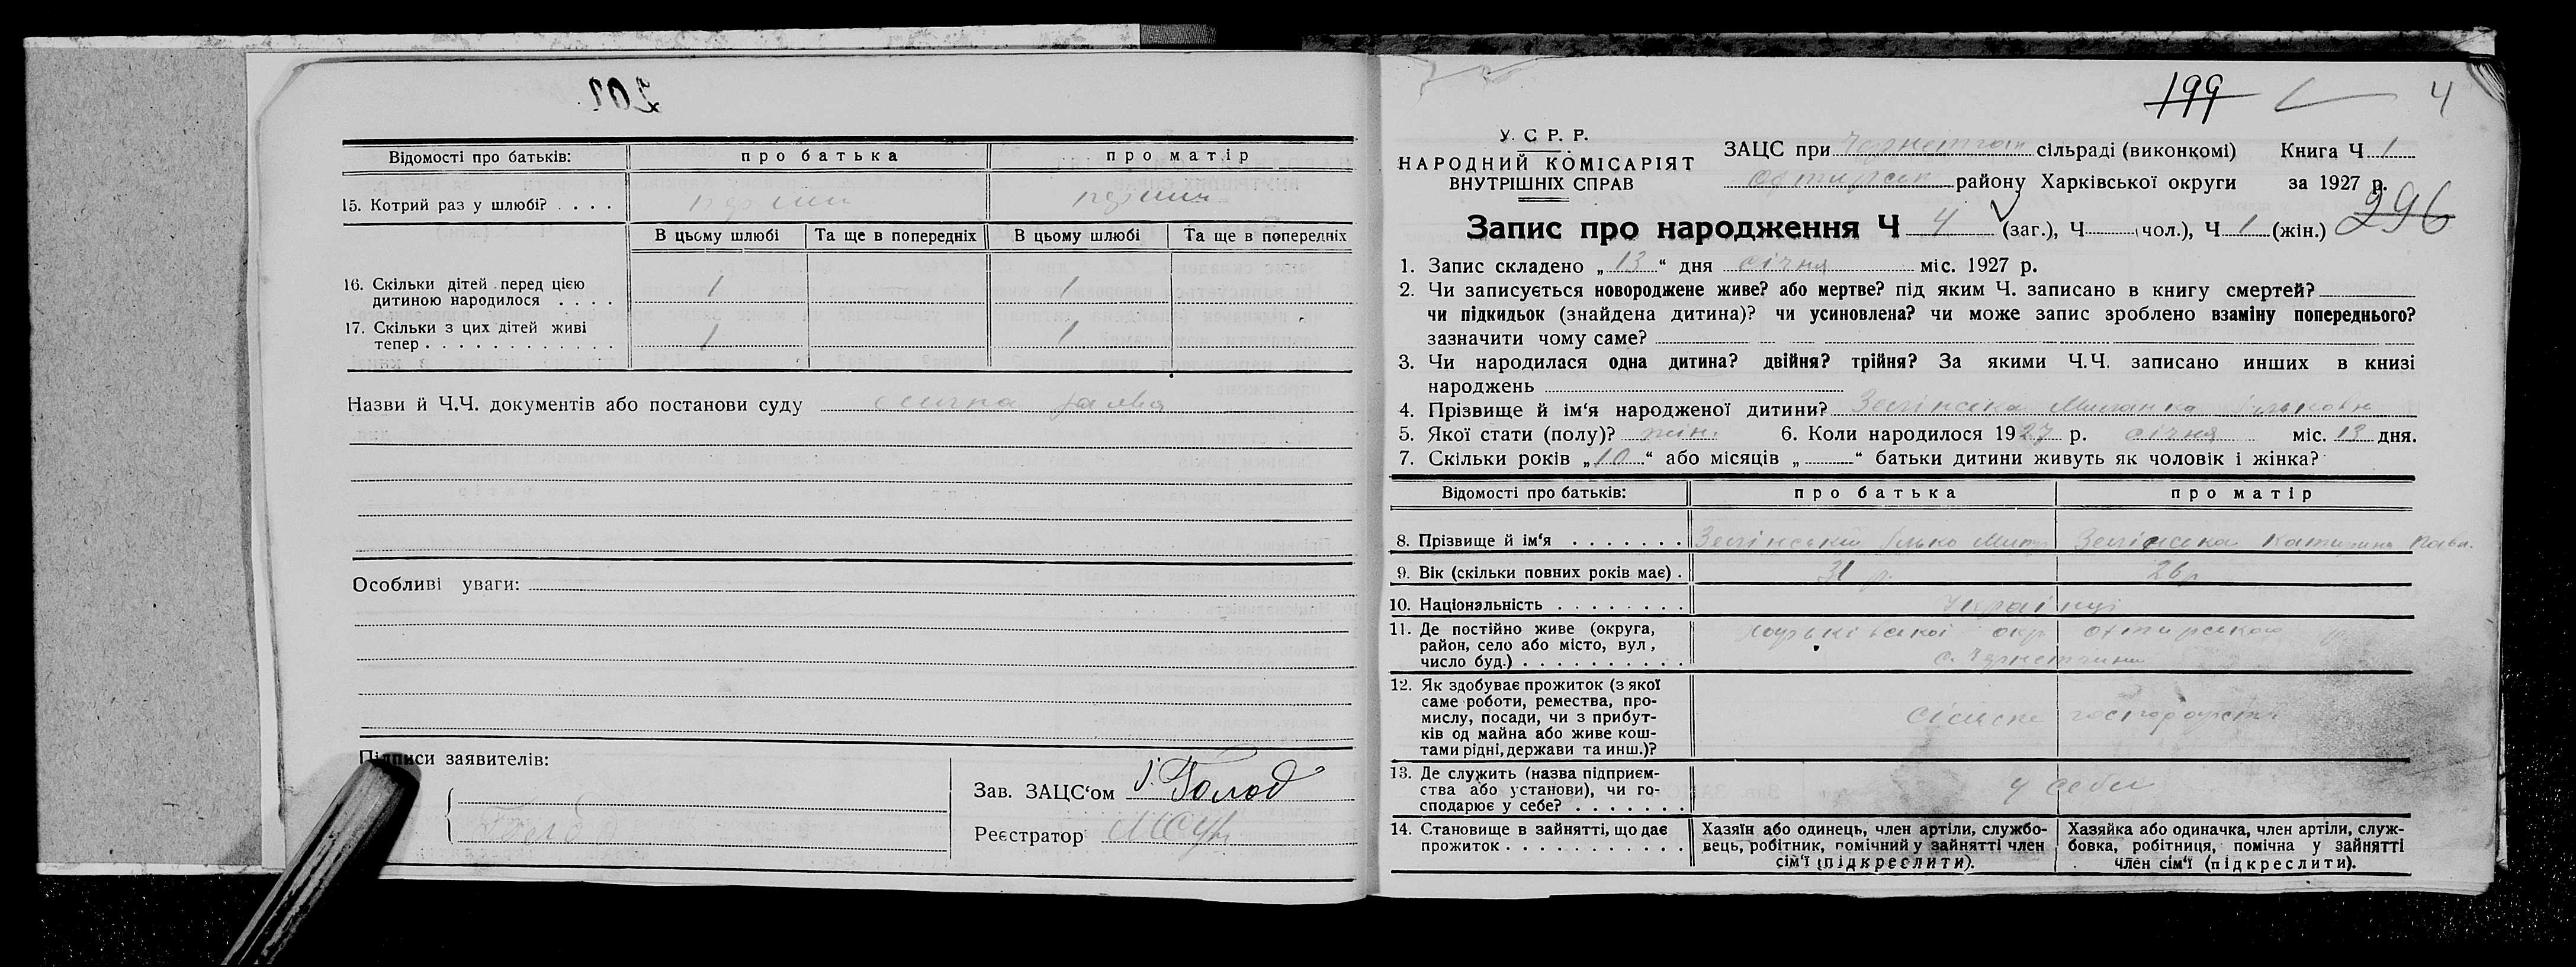 202
Відомості про батьків: про батька про матір
15. Котрий раз у шлюбі? . . . . перший перший
В цьому шлюбі Та ще в попередніх В цьому шлюбі Та ще в попередніх
16. Скільки дітей перед цією
дитиною народилося . . . . 1 1
17. Скільки з цих дітей живі
тепер . . . . . . . . . . . . . 1 1
Назви й Ч.Ч. документів або постанови суду
Особливі уваги:
Підписи заявителів:
Зав. ЗАЦС‘ом Голод
Реєстратор
199 4
У. С. Р. Р.
НАРОДНИЙ КОМІСАРІЯТ
ВНУТРІШНІХ СПРАВ
ЗАЦС при сільраді (виконкомі) Книга Ч 1
району Харківської округи за 1927 р.
296
Запис про народження Ч 4 (заг.), Ч (чол.), Ч 1 (жін.)
1. Запис складено „13“ дня січня міс. 1927 р.
2. Чи записується новороджене живе? або мертве? під яким Ч. записано в книгу смертей?
чи підкидьок (знайдена дитина)? чи усиновлена? чи може запис зроблено взаміну попереднього?
зазначити чому саме?
3. Чи народилася одна дитина? двійня? трійня? За якими Ч.Ч. записано инших в книзі
народжень
4. Прізвище й ім‘я народженої дитини?
5. Якої стати (полу)? жін. 6. Коли народилося 1927 р. січня міс. 13 дня.
7. Скільки років „10“ або місяців „ “ батьки дитини живуть як чоловік і жінка?
Відомості про батьків: про батька про матір
8. Прізвище й ім‘я . . . . . . .
9. Вік (скільки повних років має) . 31 р. 26 р.
10. Національність . . . . . . . . Українці
11. Де постійно живе (округа,
район, село або місто, вул.,
число буд.) . . . . . . . . . . Харьківської окр Охтирського
12. Як здобуває прожиток (з якої
саме роботи, ремества, про-
мислу, посади, чи з прибут-
ків од майна або живе кош-
тами рідні, держави та инш.)? сільске господарство
13. Де служить (назва підприєм-
ства або установи), чи го-
сподарює у себе? . . . . . . . у себе
14. Становище в зайнятті, що дає
прожиток . . . . . . . . . . .
Хазяїн або одинець, член артіли, службо-
вець, робітник, помічний у зайнятті член
сім‘ї (підкреслити).
Хазяйка або одиначка, член артіли, служ-
бовка, робітниця, помічна у зайнятті
член сім‘ї (підкреслити).